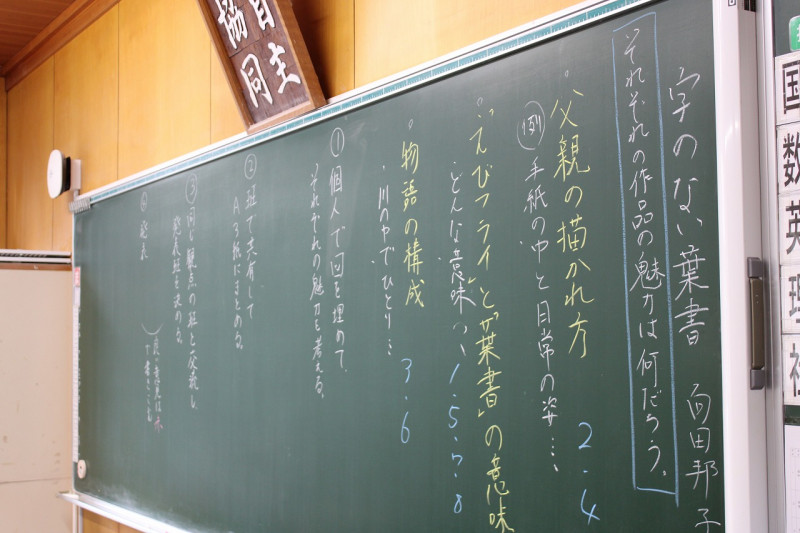 自主
協同
国
数
英
理
社
字のない葉書 向田邦子
それぞれの作品の魅力は何だろう。
・父親の描かれ方 2・4
例 手紙の中と日常の姿…
・「えびフライ」と「葉書」の意味
・どんな意味 1・5・7・8
・物語の構成 3・6
・川の中でひとり…
① 個人で図を埋めて、
それぞれの魅力も考える。
② 班で共有して
A3紙にまとめる。
③ 同じ観点の班と交流し
発表班を決める。
④ 発表